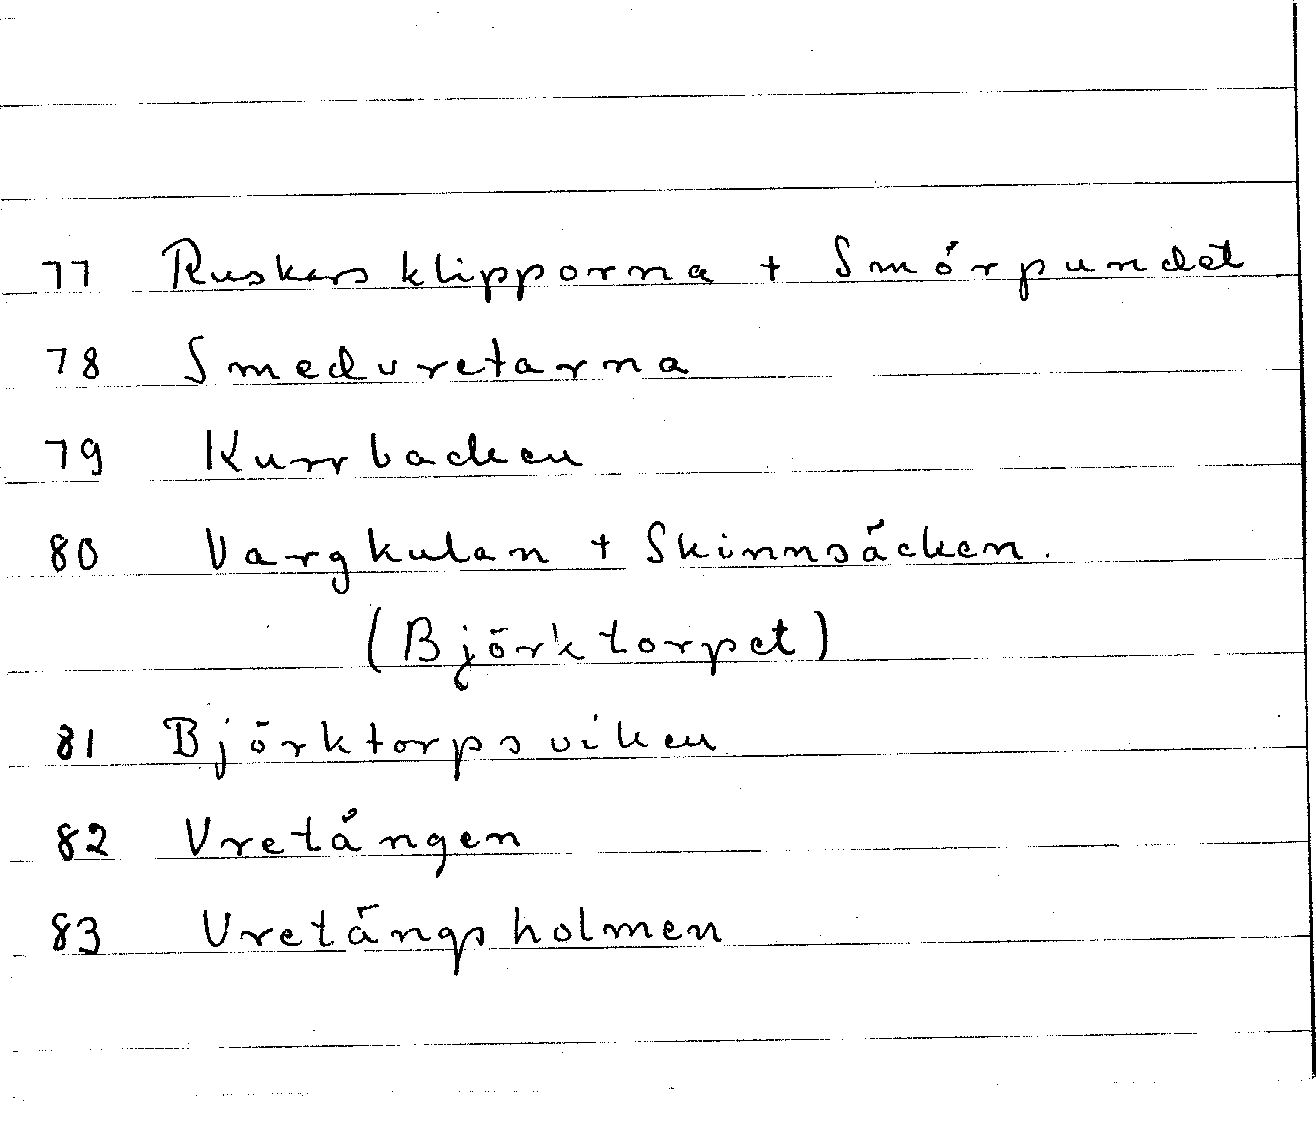 77 Ruskars klipporna + Smörpundet
78 Smedvretarna
79 Kurrbacken
80 Vargkulan + Skinnsäcken.
(Björktorpet)
81 Björktorpsviken
82 Vretängen
83 Vretängsholmen